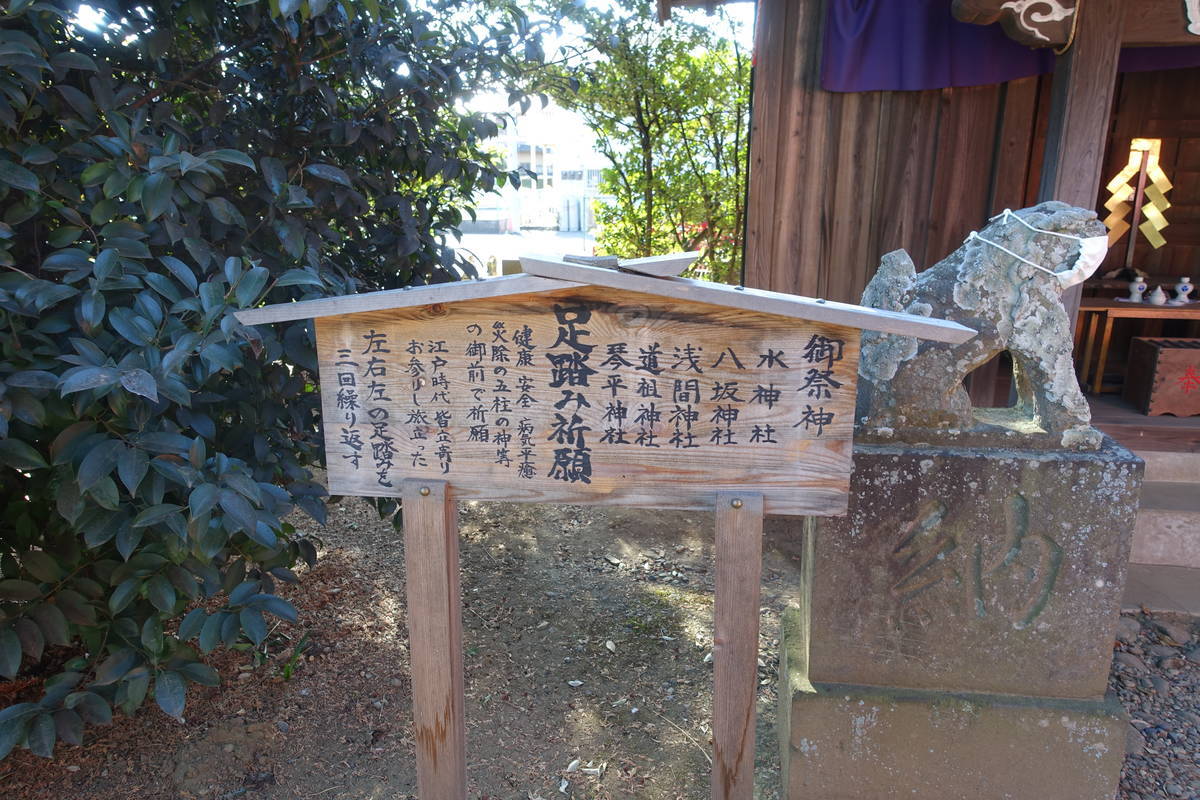 御祭神
水神社
八坂神社
浅間神社
道祖神社
琴平神社
足踏み祈願
健康 安全 病気平癒
災除の五柱の神等
の御前で祈願
江戸時代 皆立寄り
お参りし旅立った
左右左の足踏みを
三回繰り返す
納